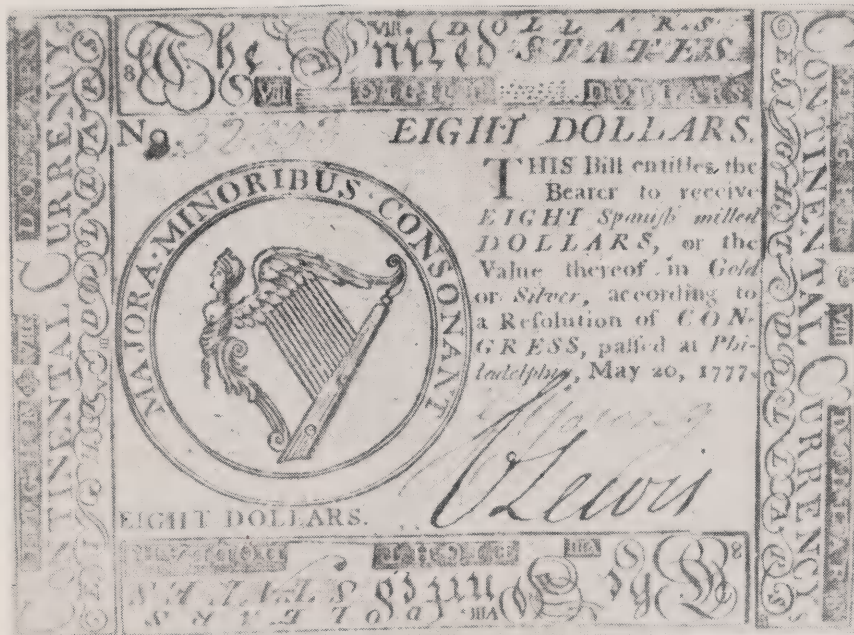 VIII. DOLLARS
The United STATES
8 VIII EIGHT DOLLARS
No. EIGHT DOLLARS.
THIS Bill entitles the
Bearer to receive
EIGHT Spaniſh milled
DOLLARS, or the
Value thereof in Gold
or Silver, according to
a Reſolution of CON-
GRESS, paſſed at Phi-
ladelphia, May 20, 1777.
MAJORA·MINORIBUS·CONSONANT
Lewis
EIGHT DOLLARS.
CONTINENTAL CURRENCY
EIGHT DOLLARS
EIGHT VIII DOLLARS
CONTINENTAL CURRENCY
EIGHT DOLLARS
EIGHT VIII DOLLARS
8 The United STATES
VIII. DOLLARS